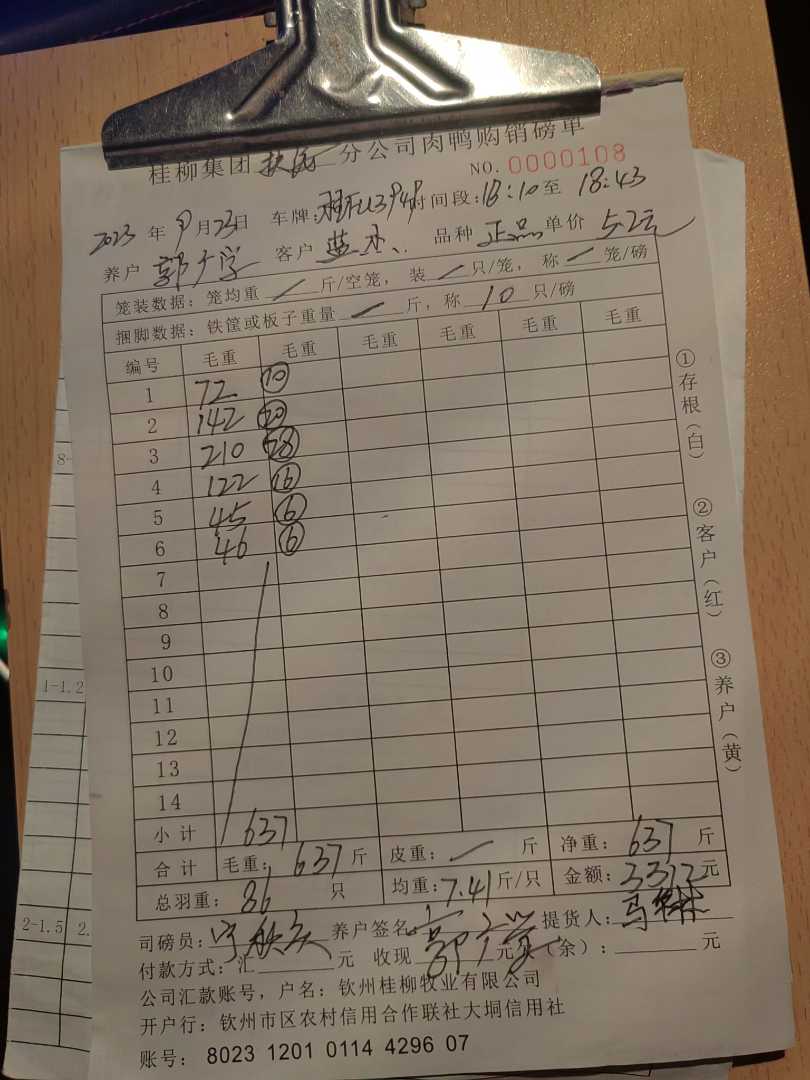 桂柳集团 分公司肉鸭购销磅单
NO. 0000108
2023 年 9 月 23 日 车牌: 时间段: 18:10 至 18:43
养户 郭广学 客户 蓝 品种 正品 单价 5.2元
笼装数据: 笼均重 / 斤/空笼, 装 / 只/笼, 称 / 笼/磅
捆脚数据: 铁筐或板子重量 / 斤, 称 10 只/磅
编号 毛重 毛重 毛重 毛重 毛重 毛重
1 72 ⑩
2 142 ⑳
3 210 ㉘
4 122 ⑯
5 45 ⑥
6 46 ⑥
7
8
9
10
11
12
13
14
小计 637
合计 毛重: 637 斤 皮重: / 斤 净重: 637 斤
总羽重: 86 只 均重: 7.41 斤/只 金额: 3312 元
司磅员: 养户签名 郭广学 提货人:
付款方式: 汇 元 收现 元 （余）: 元
公司汇款账号, 户名: 钦州桂柳牧业有限公司
开户行: 钦州市区农村信用合作联社大垌信用社
账号: 8023 1201 0114 4296 07
①存根（白）
②客户（红）
③养户（黄）
8-
1-1.2
2-1.5 2.